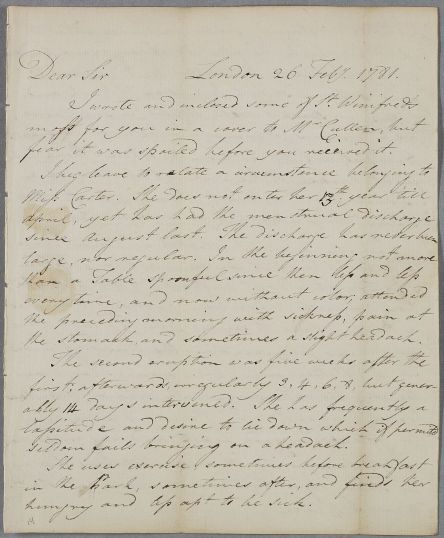 Dear Sir London 26 Feby. 1781.
I wrote and inclosed some of St. Winifred's
moss for you in a cover to Mr Cullen, but
fear it was spoiled before you received it.
I beg leave to relate a circumstance belonging to
Miss Carter. She does not enter her 13th year till
April; yet has had the menstrual discharge
since August last. The discharge has never been
large, nor regular. In the beginning not more
than a Table spoonful since then less and less
every time, and now without color, attended
the preceding morning with sickness, pain at
the stomach and sometimes a slight headach.
The second eruption was five weeks after the
first; afterwards irregularly 3, 4, 6, 8, but gener-
ally 14 days intervened. She has frequently a
lassitude and desire to lie down which if permitted
seldom fails bringing on a headach.
She uses exercise, sometimes before breakfast
in the Park, sometimes after, and finds her
hungry and less apt to be sick.